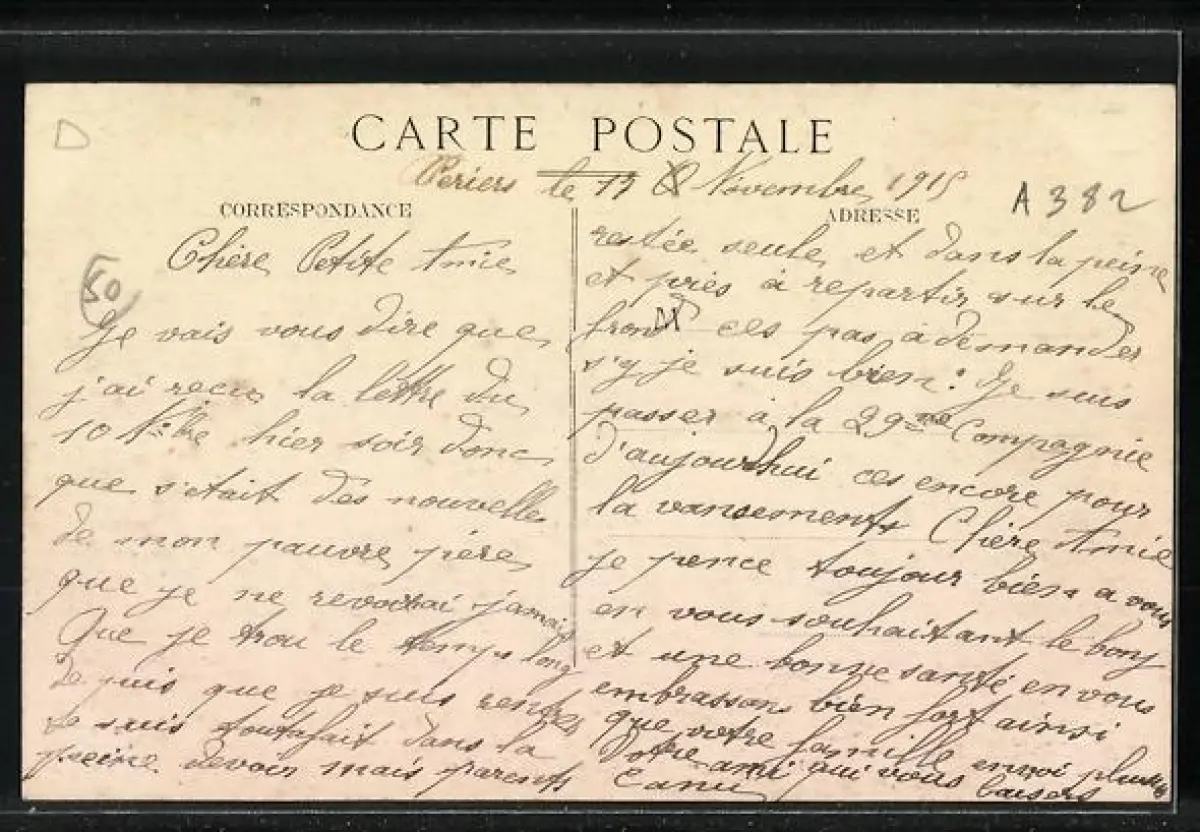 D
CARTE POSTALE
Periers le 13 Novembre 1915
A 382
CORRESPONDANCE
ADRESSE
50
Chère Petite Amie
Je vais vous dire que
j'ai recu la lettre du
10 9bre hier soir donc
que s'etait des nouvelle
de mon pauvre père
que je ne revoirai jamais
Que je trou le temps long
Depuis que je suis rentré
Je suis toutafait dans la
peine devoir mais parents
restée seule et dans la peine
et près à repartir sur le
front ces pas à demander
s'y je suis bien : Je suis
passer à la 29me Compagnie
d'aujourdhui ces encore pour
la vansements Chère Amie
je pence toujour bien a vous
en vous souhaitant le bonj
et une bonne santé en vous
embrassons bien fort ainsi
que votre famille
Votre ami qui vous envoi plusieurs
baisers
Canu